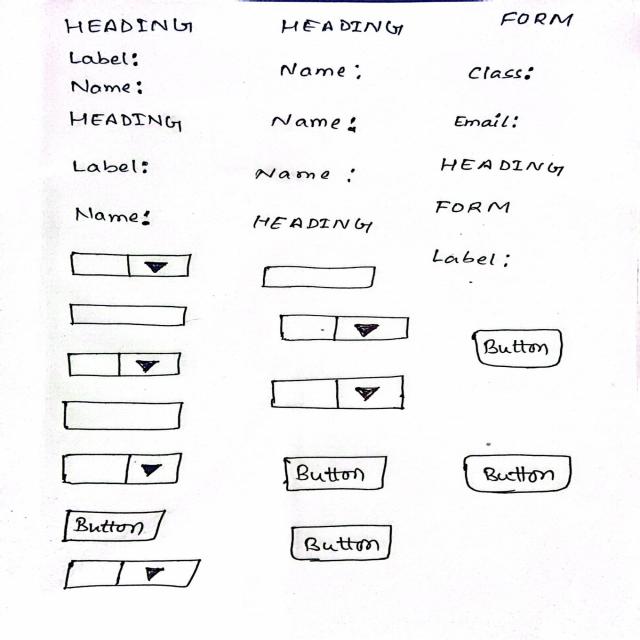 HEADING
Label:
Name:
HEADING
Label:
Name:
Button
HEADING
Name:
Name:
Name:
HEADING
Button
Button
FORM
Class:
Email:
HEADING
FORM
Label:
Button
Button